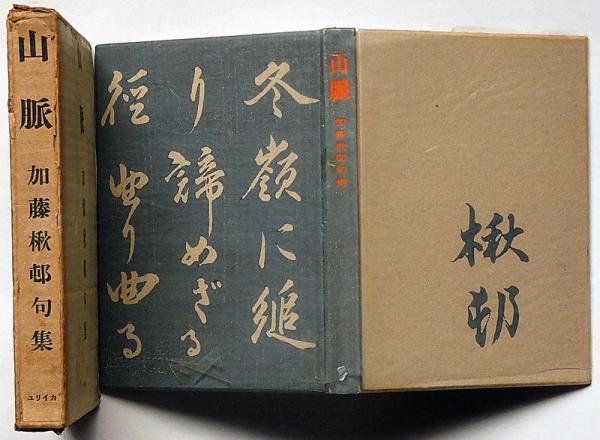 山脈
加藤楸邨句集
ユリイカ
冬嶺に縋
り諦めざる
径曲り曲る
山脈
加藤楸邨句集
楸
邨